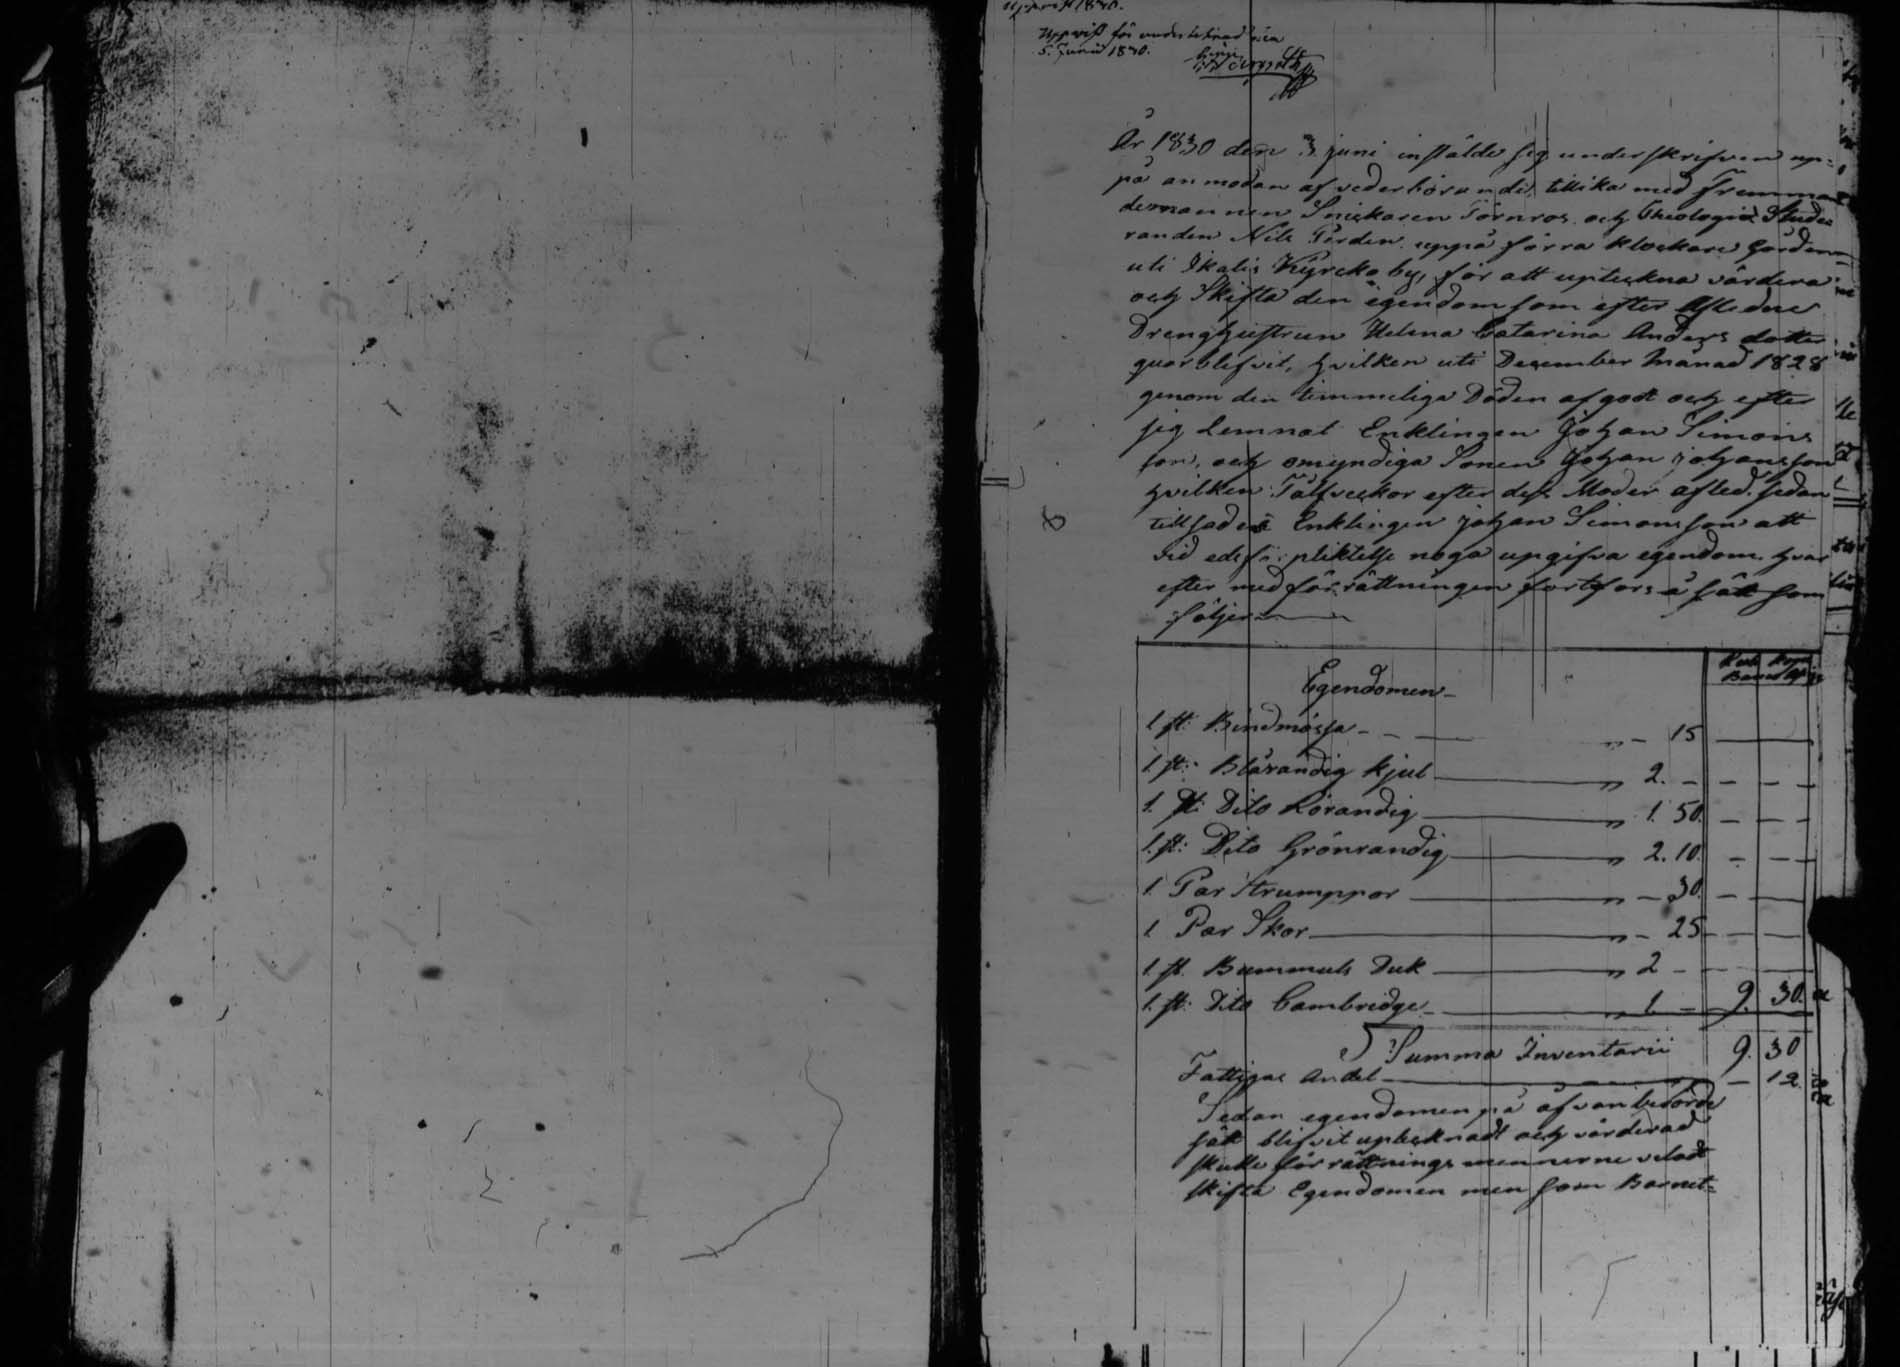 Uppvist för undertecknad
5. Junii 1830.
År 1830 den 3 juni instälde sig underskrifven up-
på anmodan af vederbörande, tillika med Tremman
Snickaren Törnros och Theologiæ Stude
randen Nils Perden uppå förra klockare Gården
uti Ikalis Kyrcko by, för att upteckna värdera
och Skifta den egendom som efter Aflidne
Drenghustrun Helena Catarina Anders dotter
quarblifvit, hvilken uti December Månad 1828
genom den timmeliga Döden afgått och efter
sig Lemnat Enklingen Johan Simons
son, och omyndiga Sonen Johan Johansson
hvilken Tålf veckor efter dess Moder afled. sedan
tillsades Enklingen Johan Simonsson att
vid eds pliktelse noga upgifva egendom. hvar
efter med förrättningen fortfors å sätt som
följer
Egendomen
1 st: Bindmössa - - - " - 15
1 st: Blårandig kjol " 2. -
1. st: Dito Rörandig " 1. 50.
1. st: Dito Grönrandig " 2. 10.
1. Par Strumppor " - 30.
1 Par Skor " - 25
1. st. Bummuls Duk " 2 -
1. st: Dito Cambridge " 1 - 9. 30.
Summa Inventarii 9. 30
Fattigas Andel - 12.
Sedan egendomen på åfvanberörde
sätt blifvit upteknadt och värderad
skulle förrättnings mennerne velat
skifta Egendomen men som Barnet-